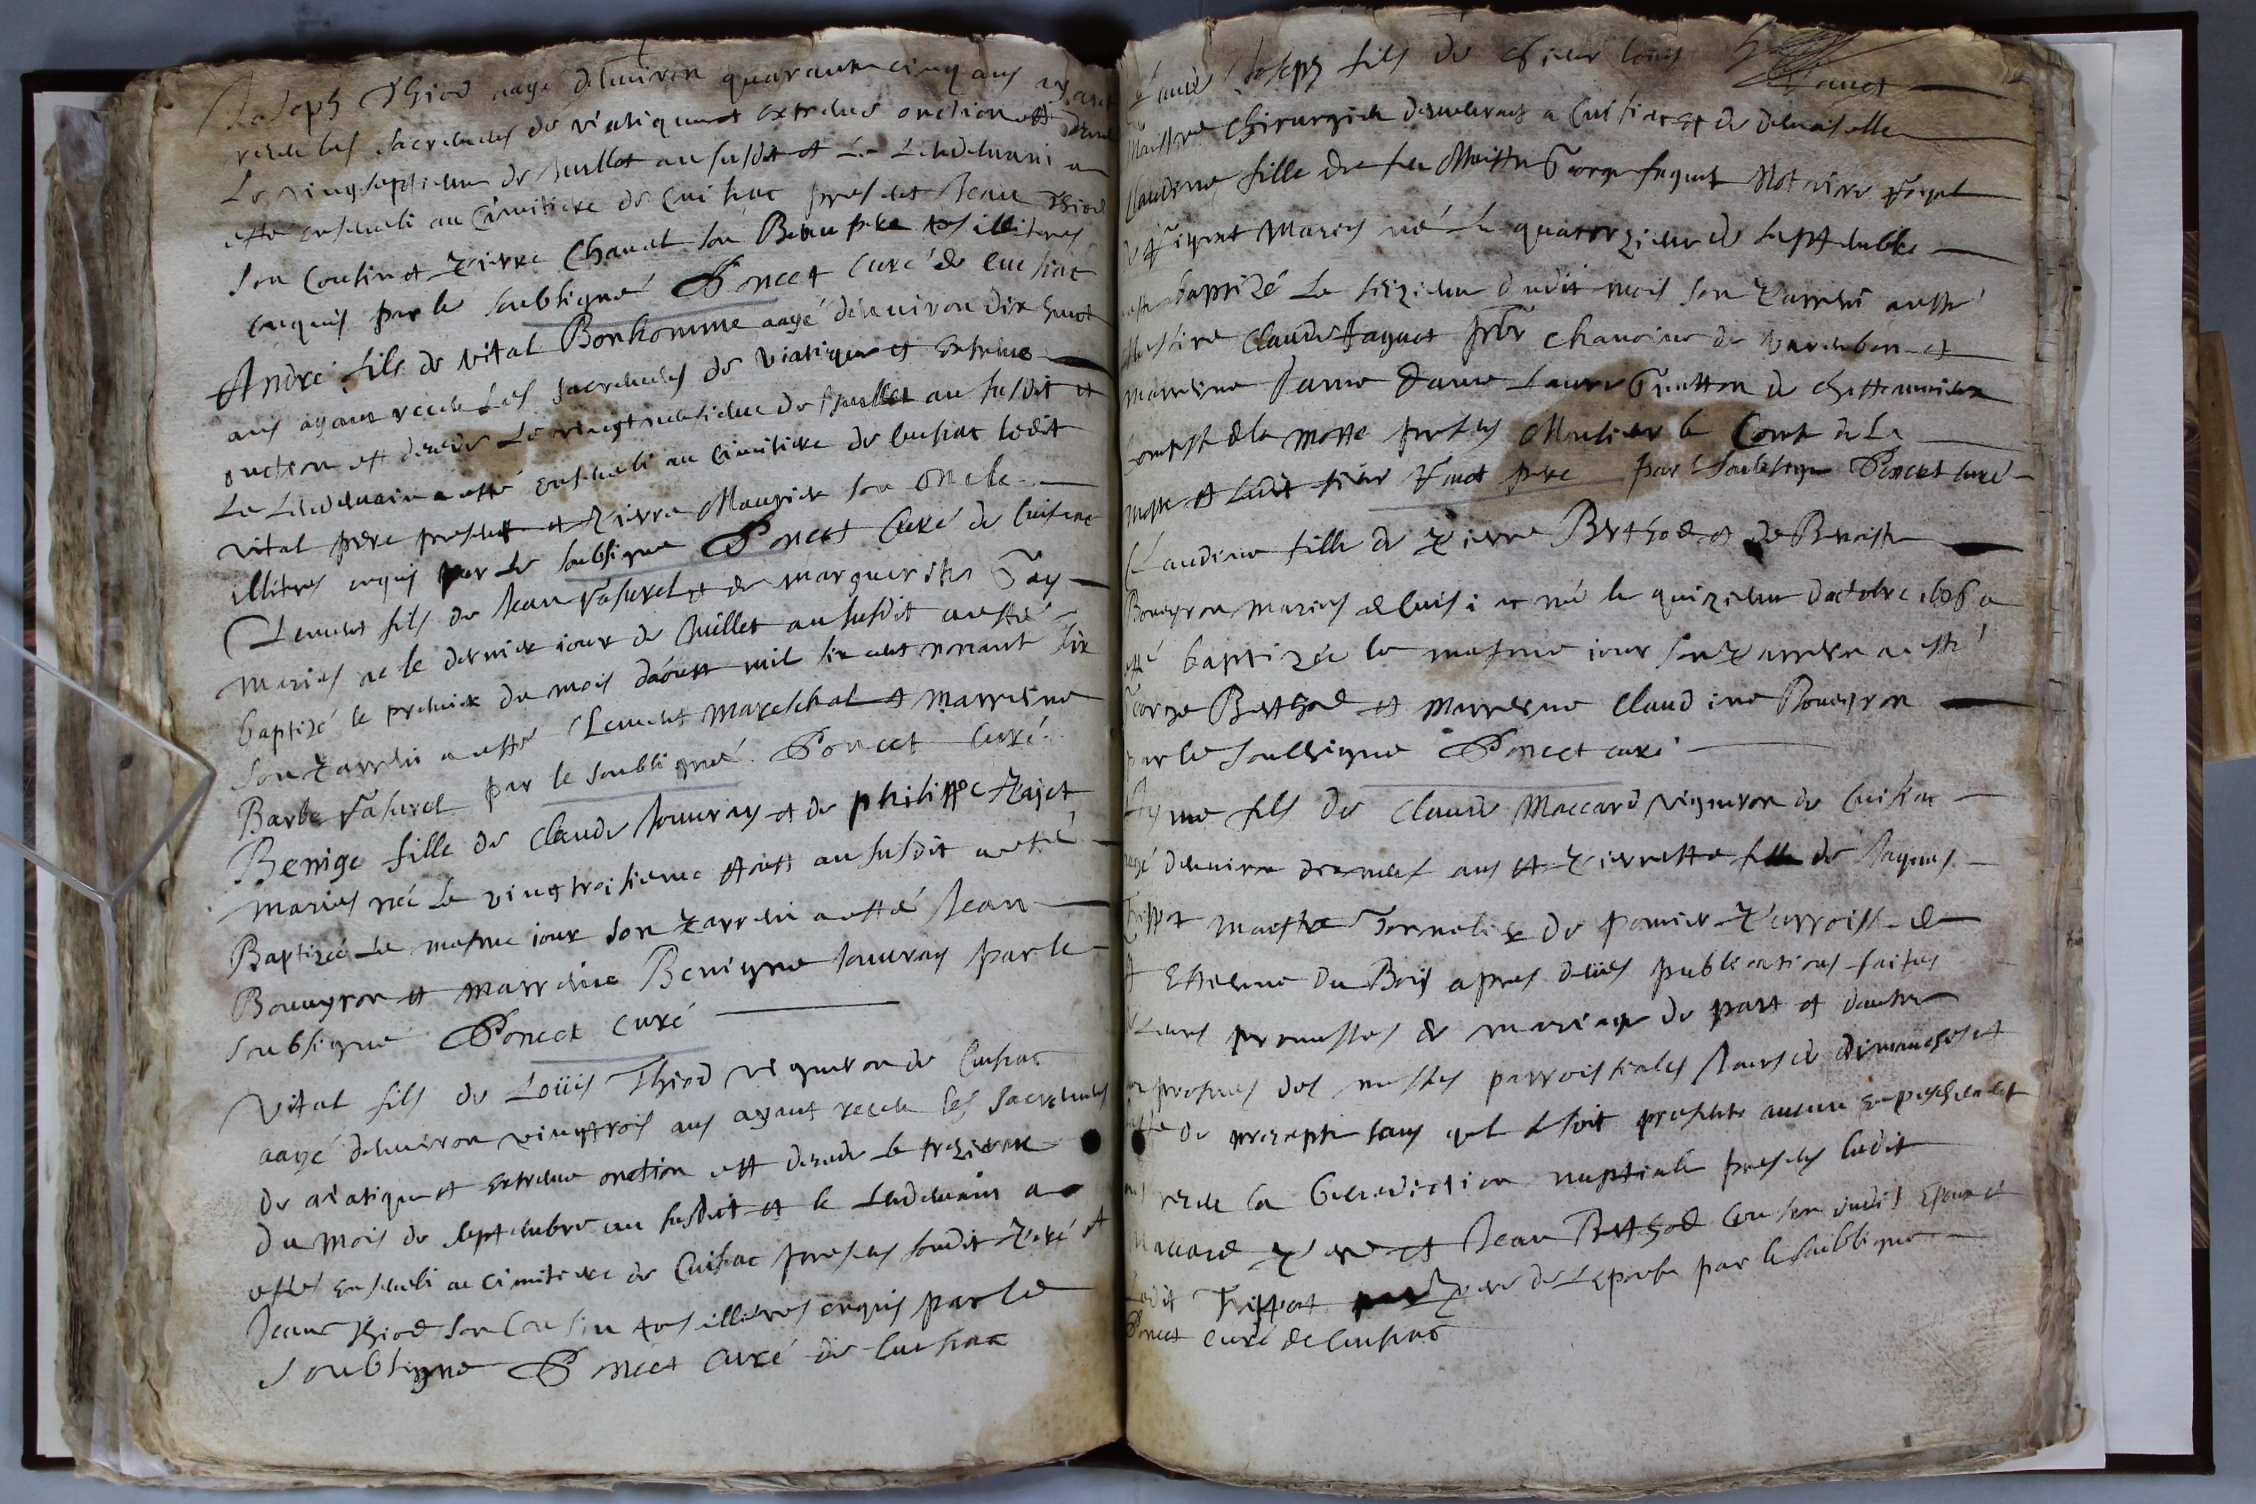 Joseph Thiod aagé denuiron quarante cinq ans ayant
receu les sacremens de viatique et extreme onction est decedé
Le vingt septieme de Juillet an susdit et Le Lendemain a
esté enseueli au Cimitiere de Cuisiac presens Jean Thiod
son Cousin et Pierre Chanel son Beau pere tous illiteres
enquis par le soubsigné Poncet Curé de Cuisiac
André fils de vital Bonhomme aagé denuiron dix huict
ans ayant receu Les sacremens de viatique et extreme
onction est decedé Le vingt neufieme de Juillet an susdit et
Le Lendemain a esté enseueli au Cimitiere de Cuisiac ledit
vital pere present et Pierre Mauzier son oncle
illiteres enquis par Le soubsigné Poncet Curé de Cuisiac
Clement fils de Jean Vasurel et de marguerite Gay
maries né le dernier iour de Juillet an susdit a esté
baptizé le premier du mois d'aoust mil six cent nonante six
son Parrein a esté Clement Mareschal et Marreine
Barbe Vasurel par le soubsigné Poncet Curé
Benige fille de claude Jouuray et de philippe Pajet
maries née Le vingt troisieme Aoust an susdit a esté
Baptizée Le mesme iour son Parrein a esté Jean
Boueyron et marreine Benigne Jouuray par le
soubsigné Poncet Curé
Vital fils de Loüis Thiod vigneron de Cuisiac
aagé denuiron vingt trois ans ayant receu les sacremens
de viatique et extreme onction est decedé le trezieme
du mois de septembre an susdit et le Lendemain a
esté enseueli au cimitiere de Cuisiac presens sondit Pere et
Jean Thiod son Cousin tous illiteres enquis par le
soubsigné Poncet Curé de Cuisiac
Claude Joseph fils de Sieur Louis
Maistre chirurgien demeurant a Cuisiac et de demoiselle
Claudine fille de feu Maistre George faguet Notaire Royal
maries né Le quatorzieme de septembre
baptizé Le seizieme dudit mois son Parrein a esté
Messire Claude faguet pbre chanoine de et
marreine Dame Laure de
Comtesse de la Motte presens Monsieur le Comte de La
Motte et Ledit sieur pere par le soubsigné Poncet curé
Claudine fille de Pierre Berthod et de Benoiste
Boueyron maries de Cuisiac né le quinzieme d'octobre 1696 a
esté baptizée le mesme iour son Parrein a esté
George Berthod et marreine Claudine Boueyron
par le soubsigné Poncet curé
Ayme fils de Claude Maccard vigneron de Cuisiac
aagé denuiron dixneuf ans et Pierrette fille de Jaques
Trippot Maistre Tonnelier de Parroisse de
St Estienne Du Bois apres deües publications faites
de Leurs promesses de mariage de part et dautre
aux prosnes des messes parroisiales Jours de dimanches et
feste de precepte sans quil se soit presenté aucun empeschement
ont receu la benediction nuptiale presens ledit
Maccard Pere et Jean Berthod Cousin dudit Espoux et
Ledit Trippot pere de Lepouse par le soubsigné
Poncet curé de Cuisiac